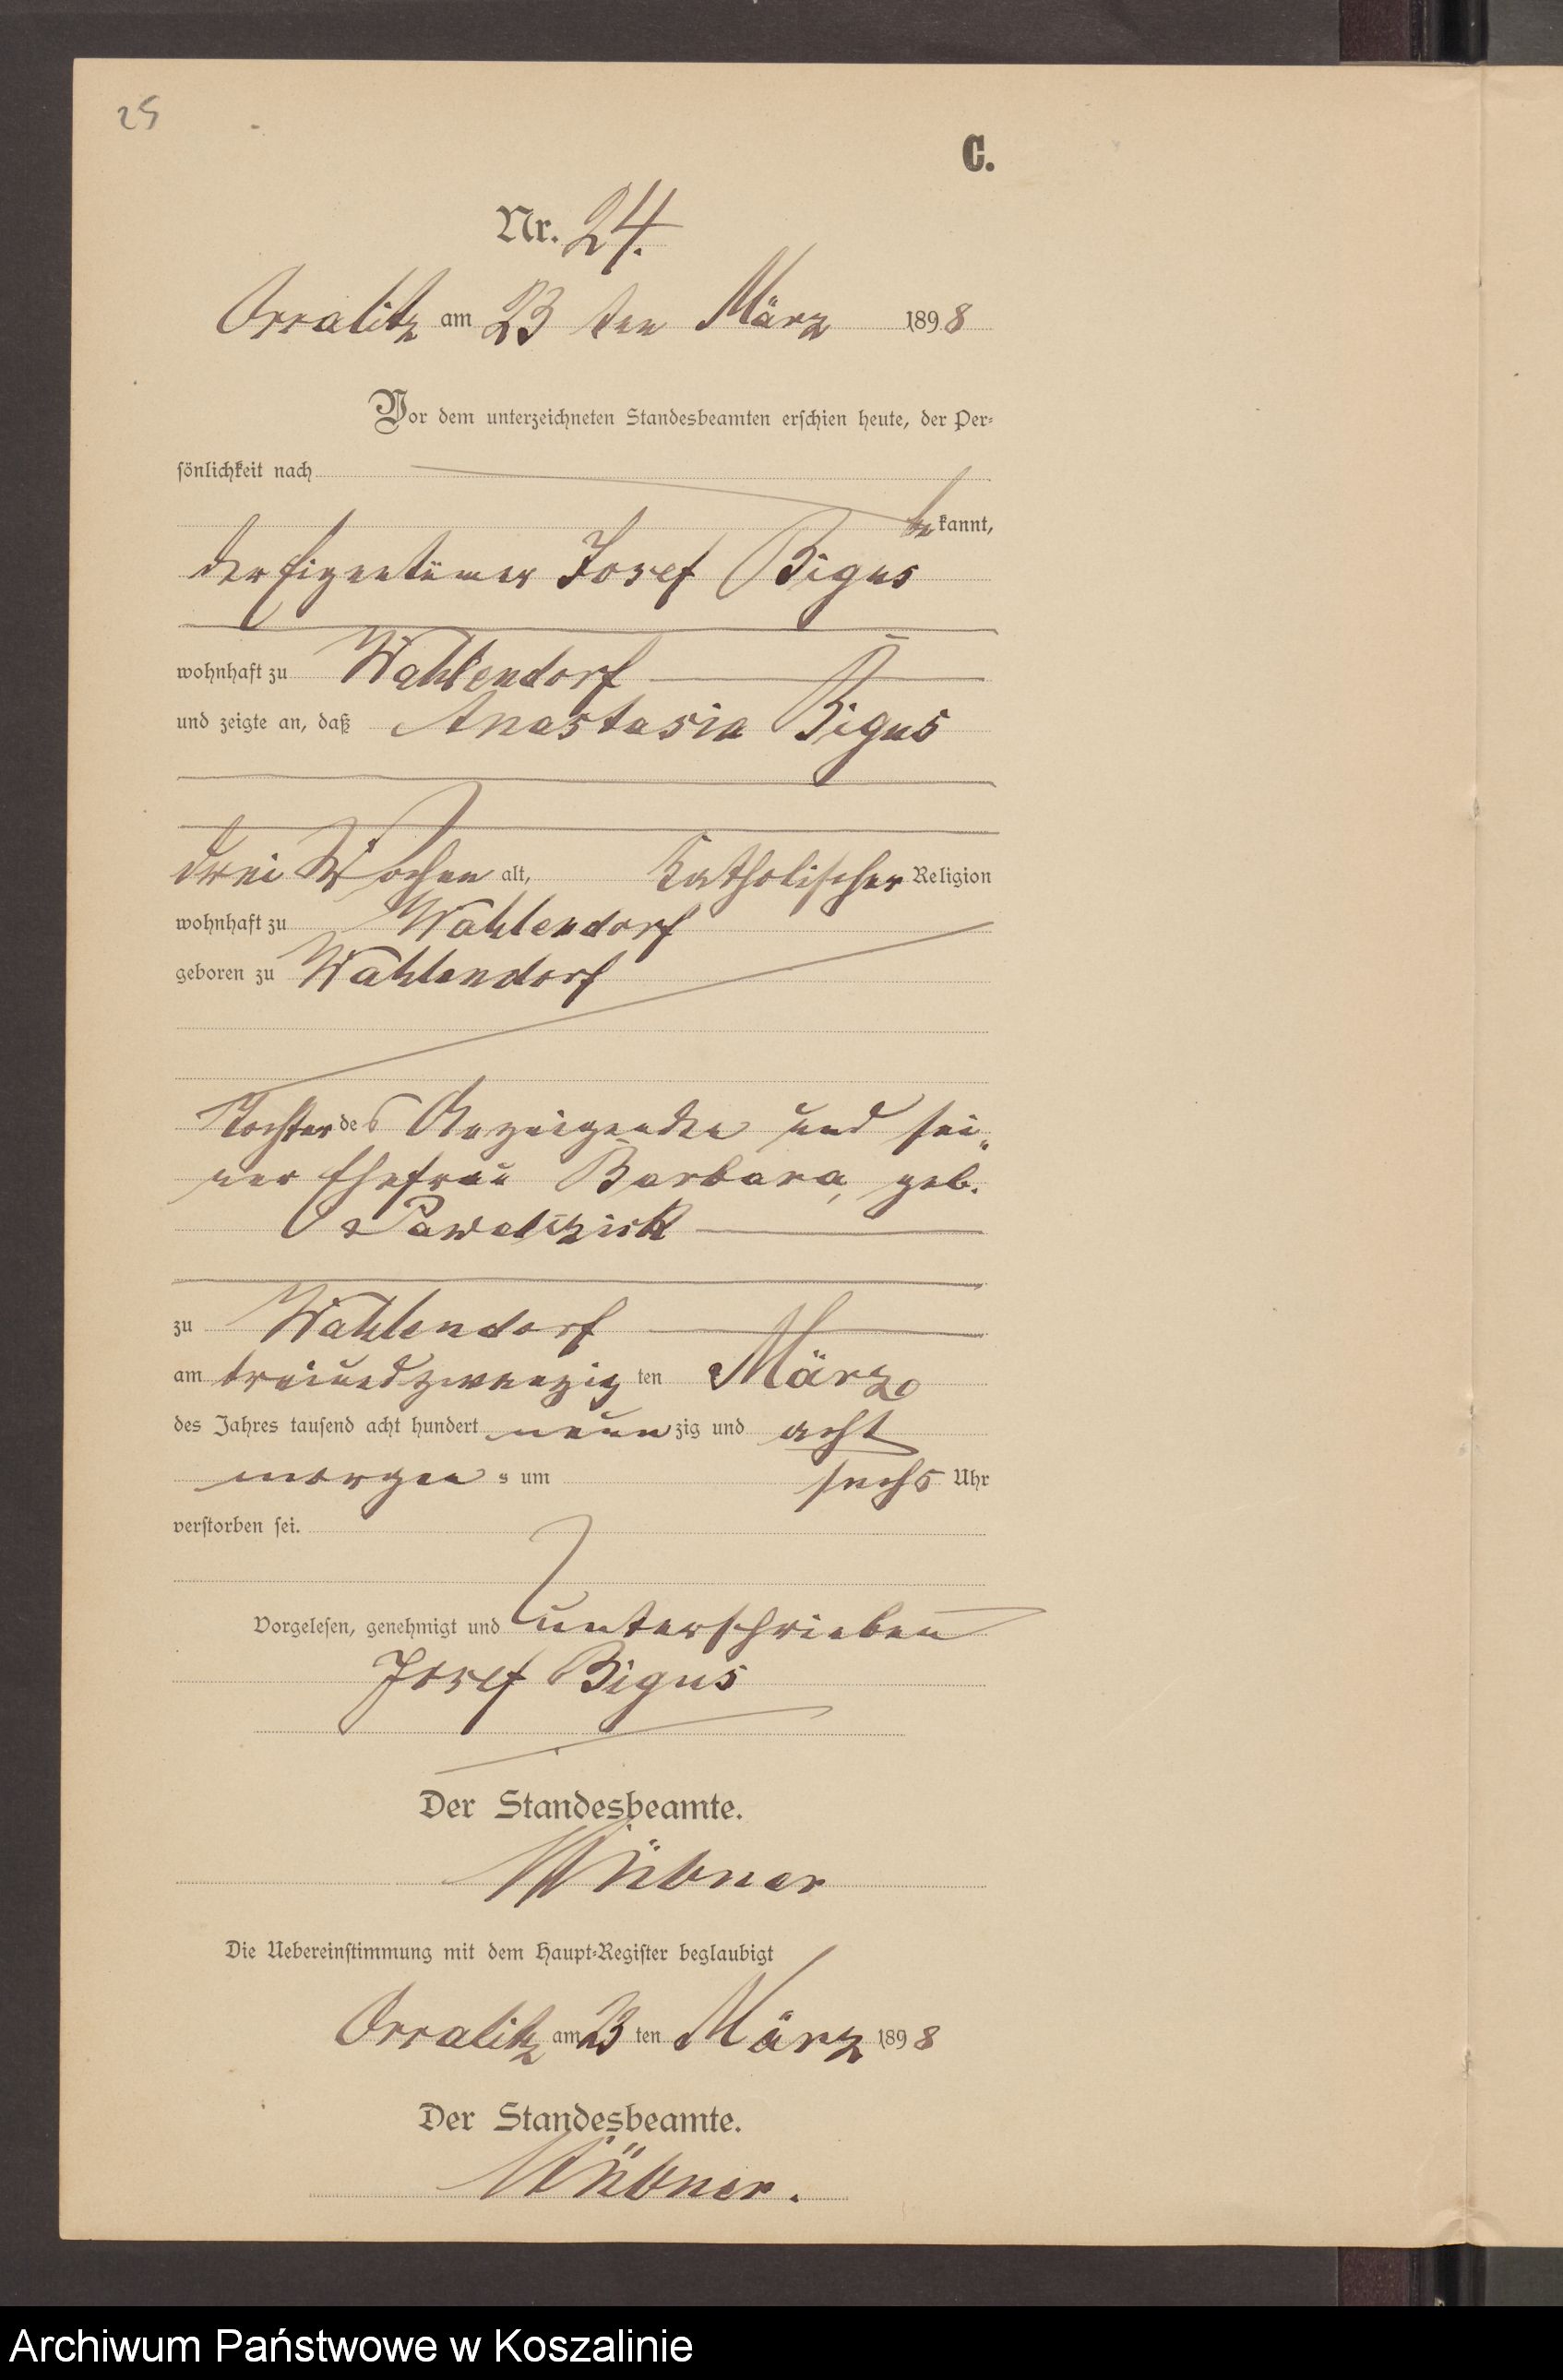 25
C.
Nr. 24.
Ossalitz am 23 ten März 1898
Vor dem unterzeichneten Standesbeamten erschien heute, der Per-
sönlichkeit nach
bekannt,
der Eigentümer Josef Bigus
wohnhaft zu Wahlendorf
und zeigte an, daß Anastasia Bigus
drei Wochen alt, katholischer Religion
wohnhaft zu Wahlendorf
geboren zu Wahlendorf
Tochter des Anzeigenden und sei-
ner Ehefrau Barbara, geb.
zu Wahlendorf
am dreiundzwanzig ten März
des Jahres tausend acht hundert neunzig und acht
morgens um sechs Uhr
verstorben sei.
Vorgelesen, genehmigt und unterschrieben
Josef Bigus
Der Standesbeamte.
Die Uebereinstimmung mit dem Haupt-Register beglaubigt
Ossalitz am 23 ten März 1898
Der Standesbeamte.
Archiwum Państwowe w Koszalinie